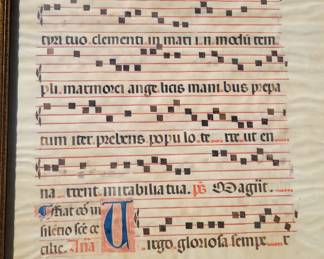 tyri tuo clementi in mari i.n modū tem
pli marmorei ange licis mani bus prepa
tum iter prebens popu lo. te rre ut en
na rrent mirabilia tua. ps
silentio
cilie. Aña U irgo gloriosa semper